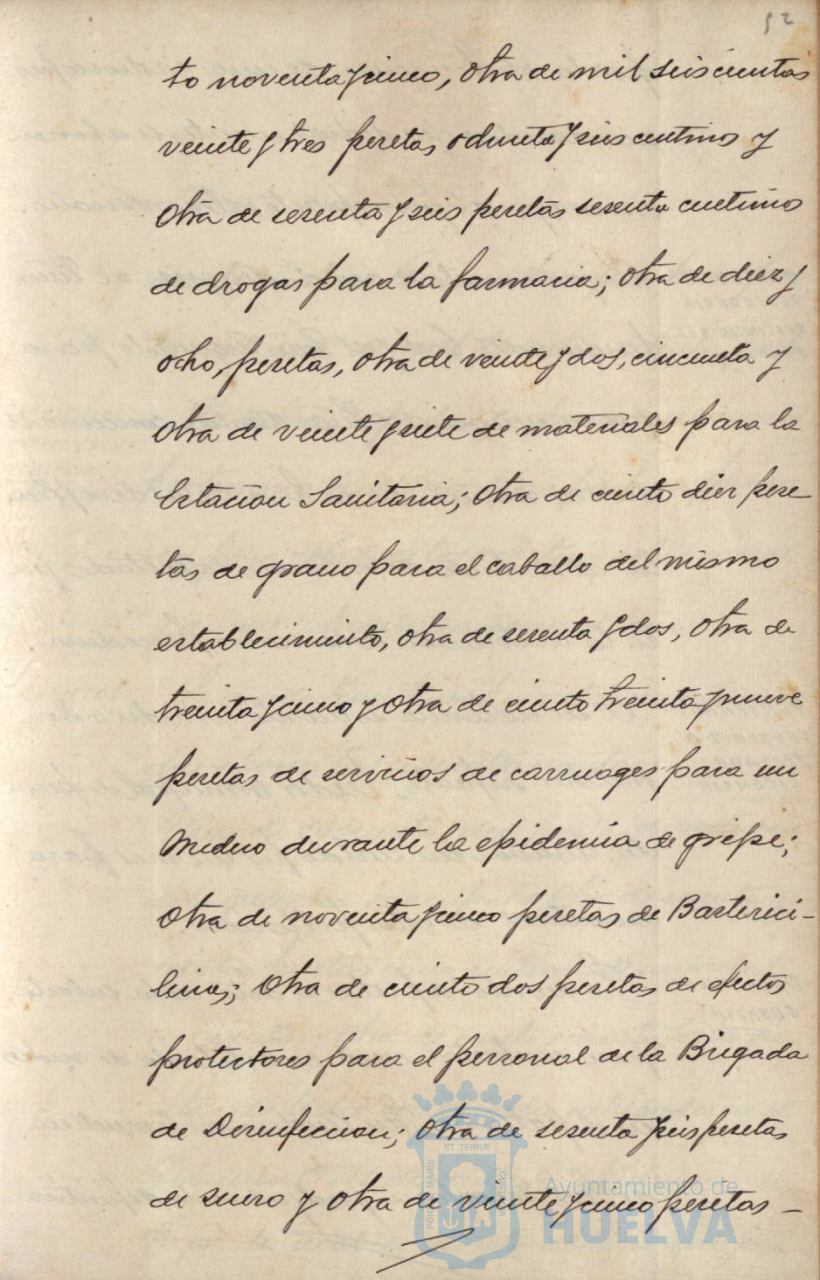 52
to noventa y cinco, otra de mil seiscientas
veinte y tres pesetas ochenta y seis centimos y
otra de sesenta y seis pesetas sesenta centimos
de drogas para la farmacia; otra de diez y
ocho, pesetas, otra de veinte y dos, cincuenta y
otra de veinte y siete de materiales para la
Estación Sanitaria; otra de ciento diez pese-
tas de grano para el caballo del mismo
establecimiento, otra de sesenta y dos, otra de
treinta y cinco y otra de ciento treinta y nueve
pesetas de servicios de carruages para un
Medico durante la epidemia de gripe;
otra de noventa y cinco pesetas de Bacterici-
linas; otra de ciento dos pesetas de efectos
protectores para el personal de la Brigada
de Desinfeccion; otra de sesenta y seis pesetas
de suero y otra de veinte y cinco pesetas -
PORTUS MARIS
ET TERRÆ
Ayuntamiento de
HUELVA